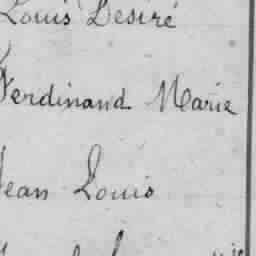 Louis Desiré
Ferdinand Marie
Jean Louis